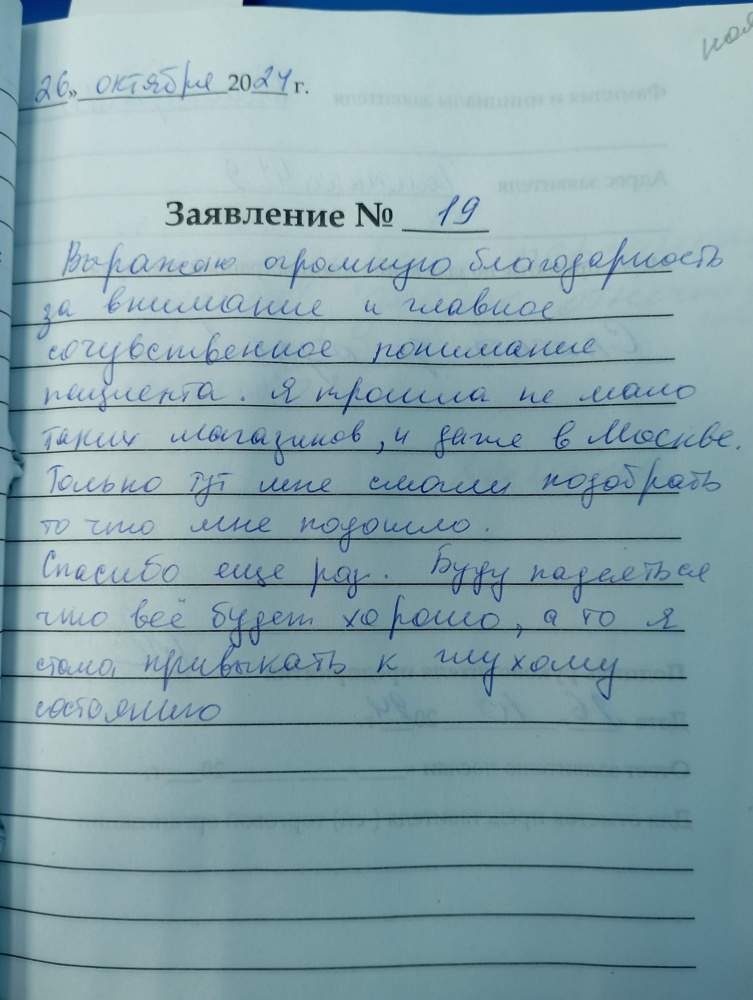 26» октября 2024 г.
Заявление № 19
Выражаю огромную благодарность
за внимание и главное
сочувственное понимание
пациента. Я прошла не мало
таких магазинов, и даже в Москве.
Только тут мне смогли подобрать
то что мне подошло.
Спасибо еще раз. Буду надеяться
что всё будет хорошо, а то я
стала привыкать к глухому
состоянию